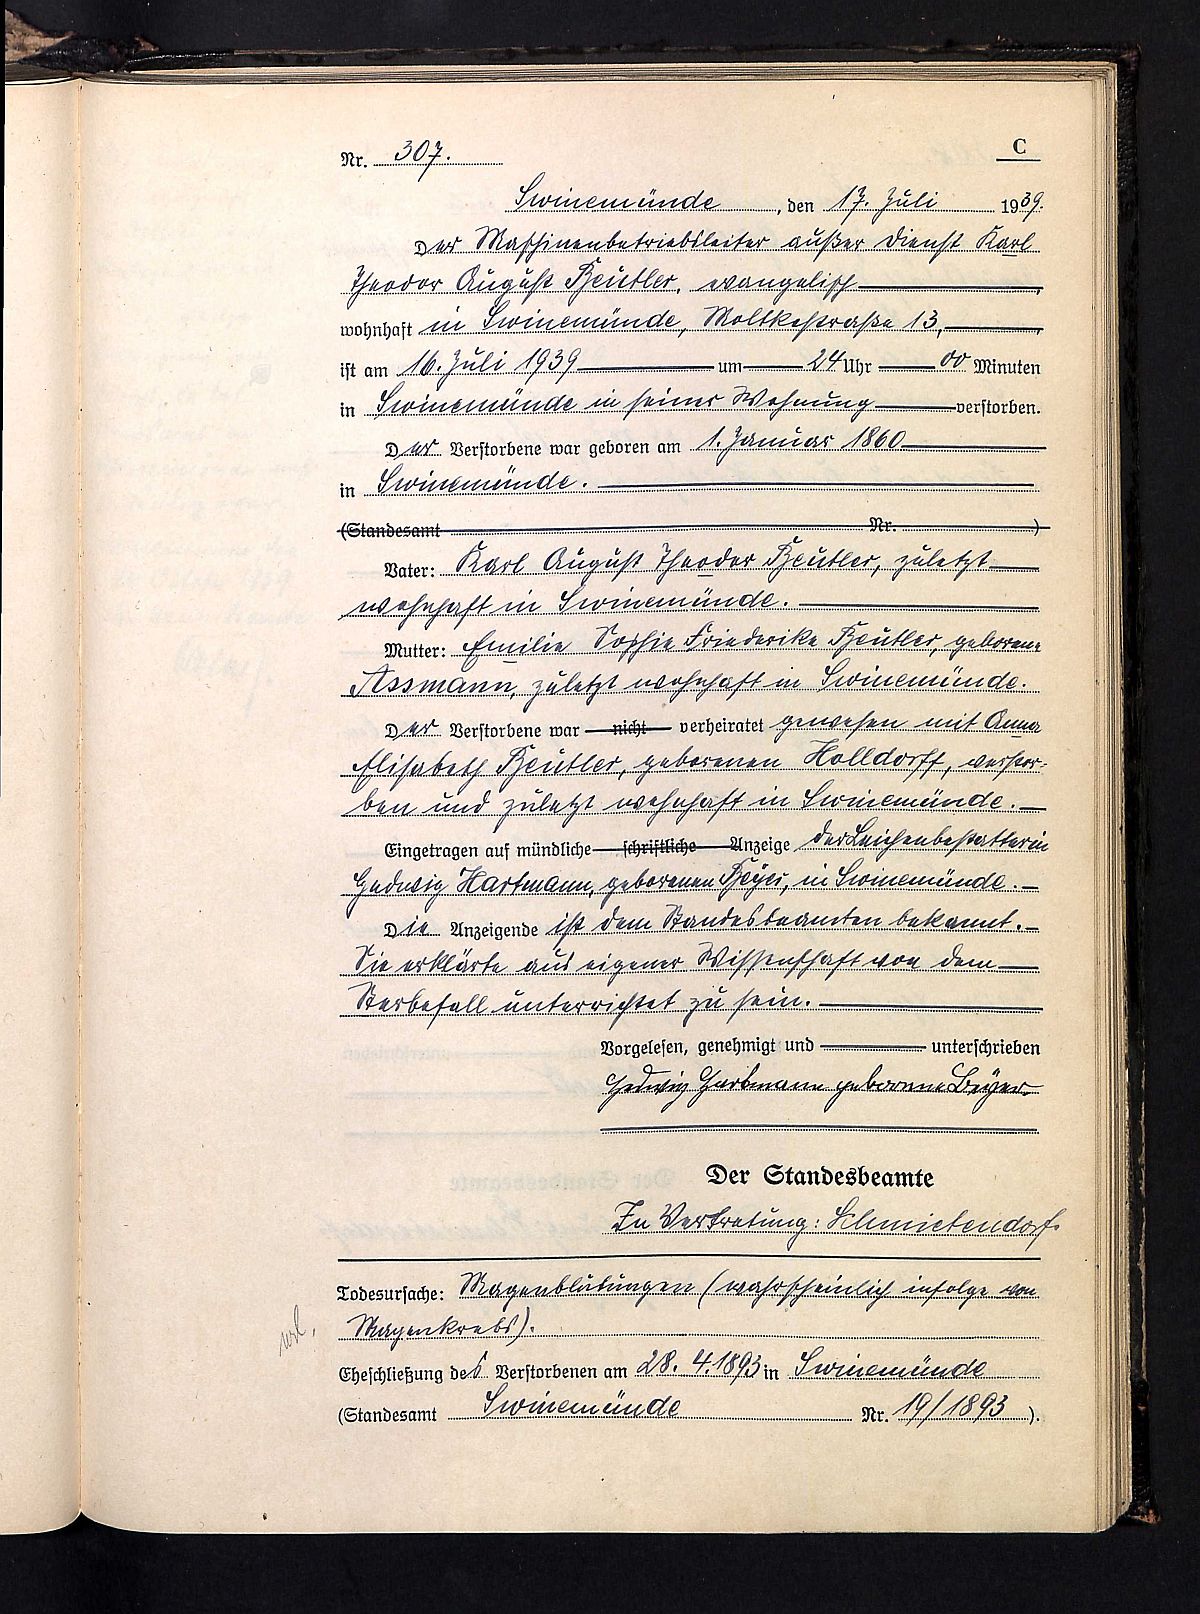 C
Nr. 307.
Swinemünde, den 17. Juli 1939.
Der Maschinenbetriebsleiter außer Dienst Karl
Theodor August Beutler, evangelisch
wohnhaft in Swinemünde, Moltkestraße 13,
ist am 16. Juli 1939 um 24 Uhr 00 Minuten
in Swinemünde in seiner Wohnung verstorben.
Der Verstorbene war geboren am 1. Januar 1860
in Swinemünde.
(Standesamt Nr. )
Vater: Karl August Theodor Beutler, zuletzt
wohnhaft in Swinemünde.
Mutter: Emilie Sophie Friederike Beutler, geborene
Assmann, zuletzt wohnhaft in Swinemünde.
Der Verstorbene war nicht verheiratet gewesen mit Anna
Elisabeth Beutler, geborenen Holldorff, verstor-
ben und zuletzt wohnhaft in Swinemünde.
Eingetragen auf mündliche schriftliche Anzeige der Leichenbestatterin
Hedwig Hartmann, geborenen Beyer, in Swinemünde.
Die Anzeigende ist dem Standesbeamten bekannt.
Sie erklärte aus eigener Wissenschaft von dem
Sterbefall unterrichtet zu sein.
Vorgelesen, genehmigt und unterschrieben
Hedwig Hartmann geborene Beyer.
Der Standesbeamte
In Vertretung: Schmietendorf
Todesursache: Magenblutungen (wahrscheinlich infolge von
Magenkrebs).
Eheschließung des Verstorbenen am 28. 4. 1893 in Swinemünde
(Standesamt Swinemünde Nr. 19/1893 ).